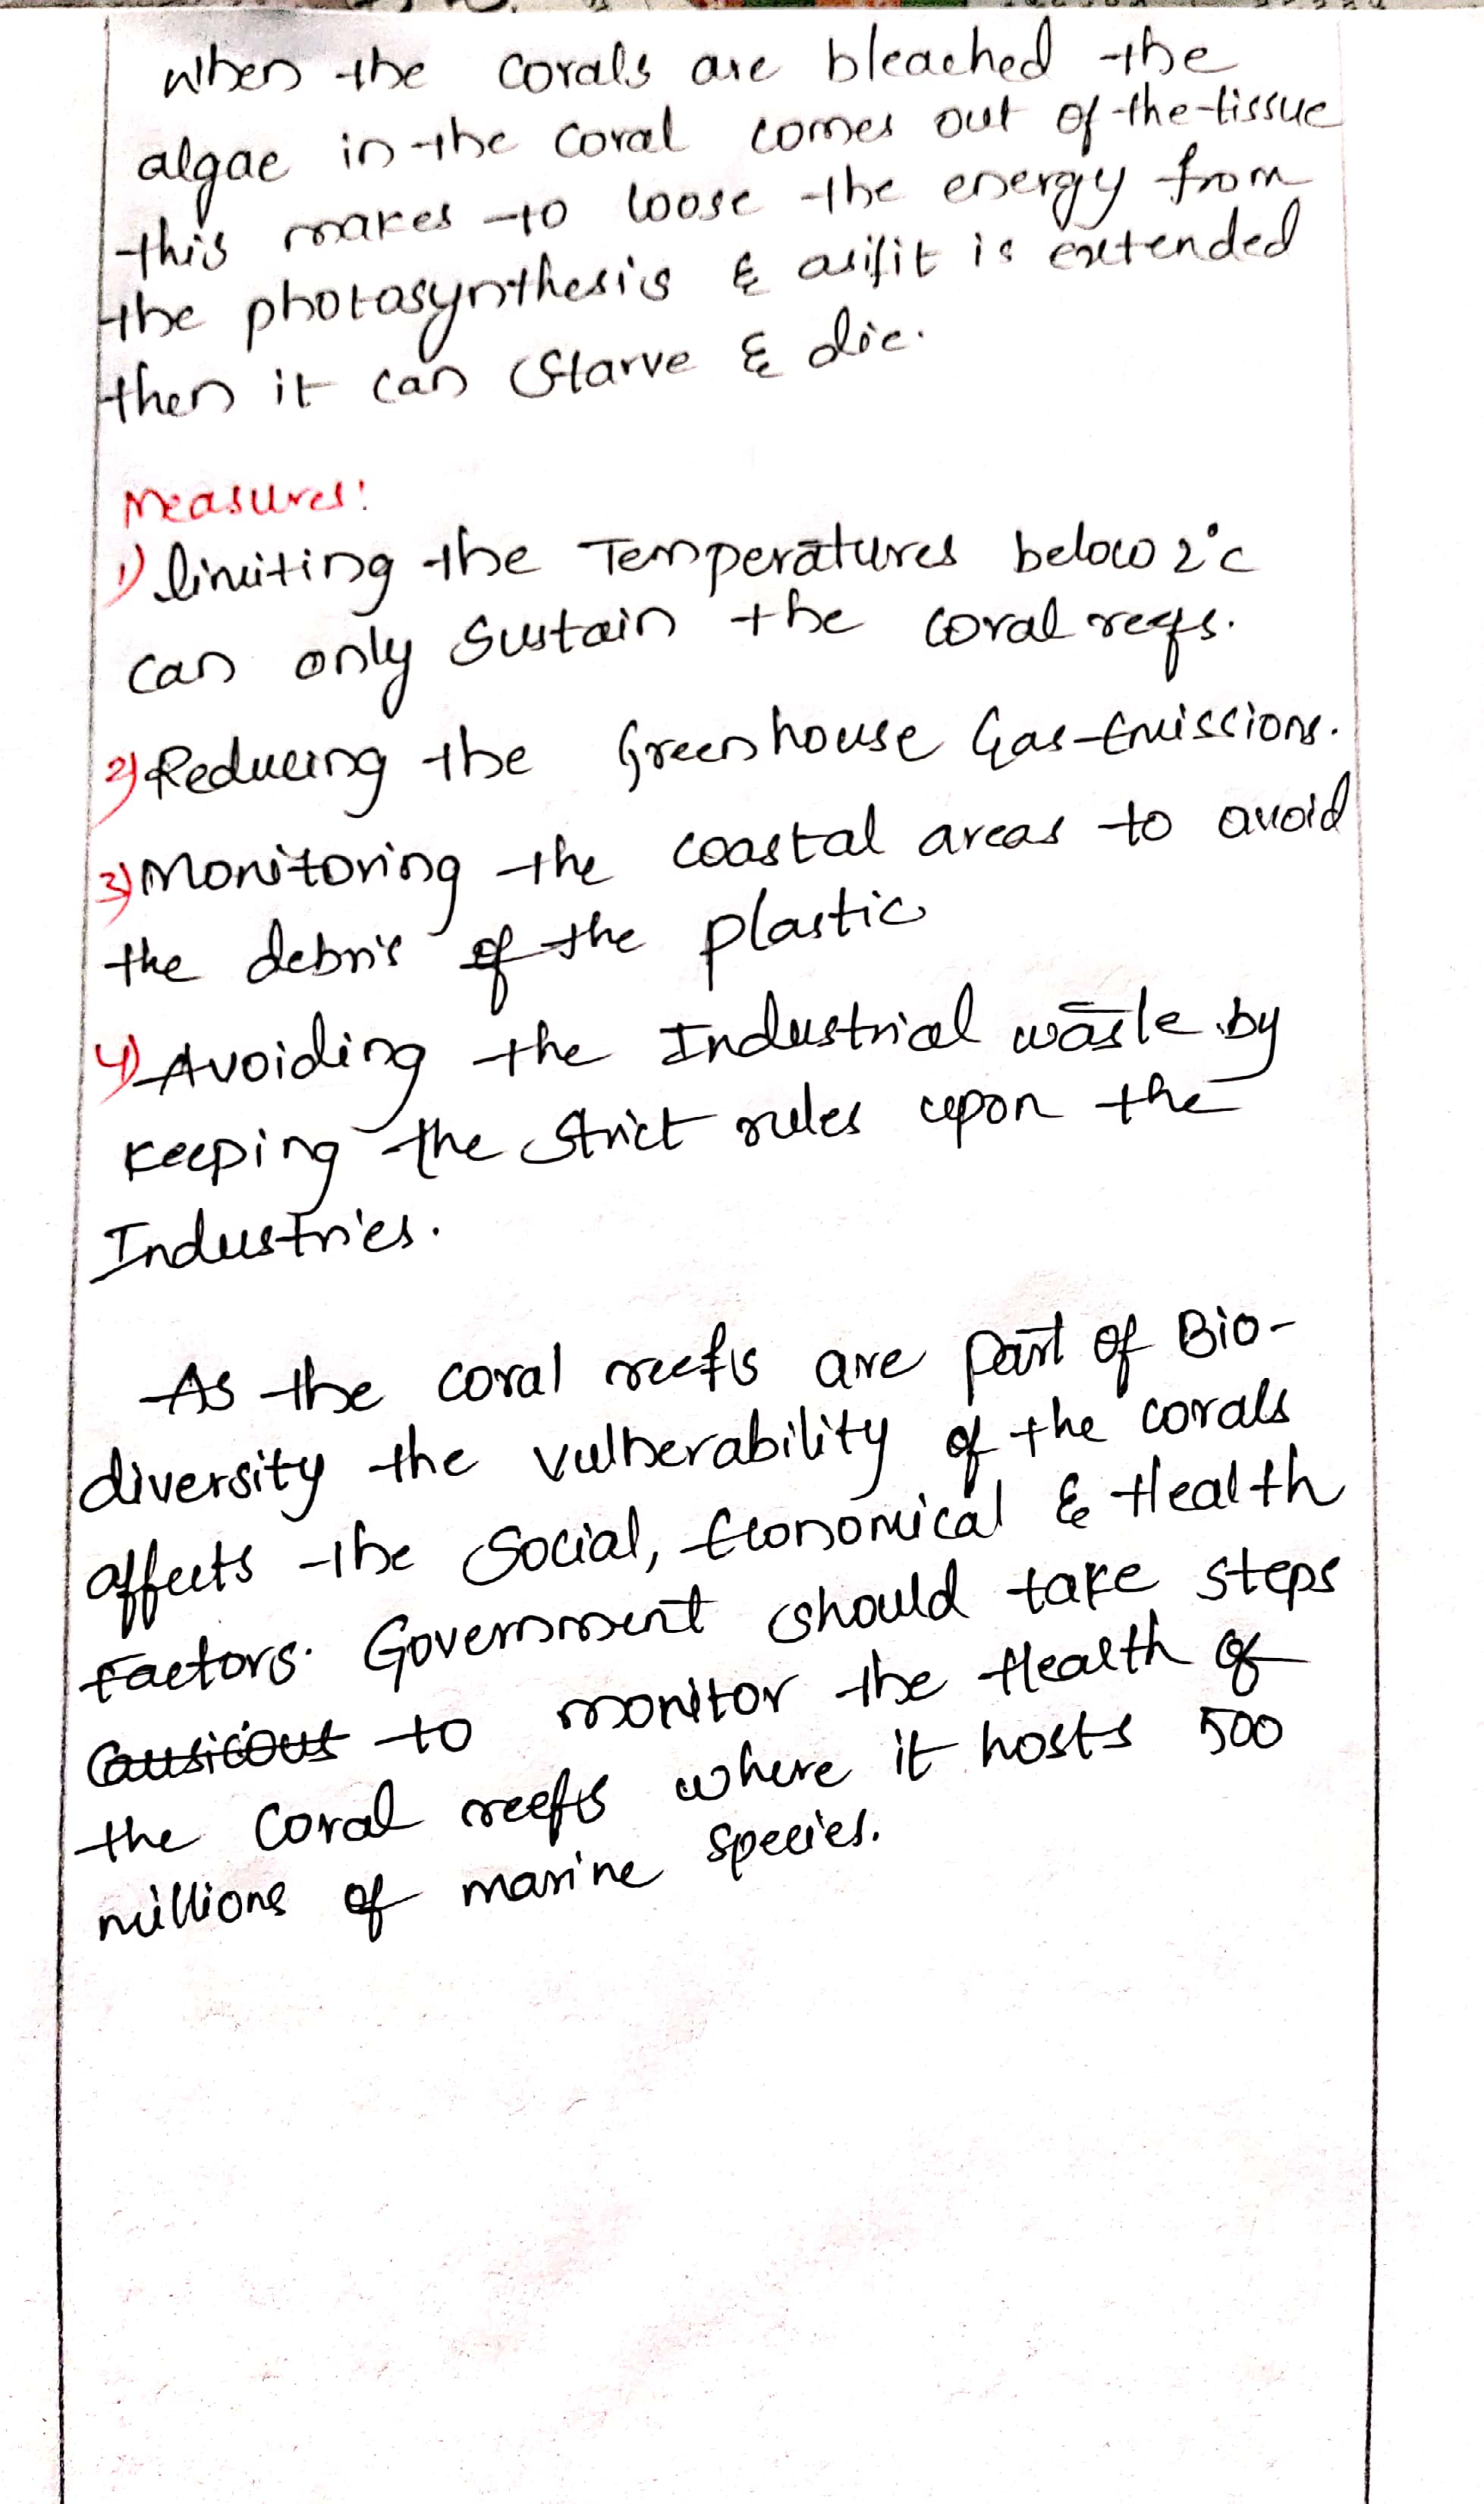 when the corals are bleached the
algae in the coral comes out of the tissue
this makes to loose the energy from
the photosynthesis & asifit is extended
then it can starve & die.
Measures:
1) limiting the Temperatures below 2°c
can only Sustain the coral reefs.
2) Reducing the Greenhouse Gas-Emissions.
3) Monitoring the coastal areas to avoid
the debris of the plastic
4) Avoiding the Industrial waste by
keeping the strict rules upon the
Industries.
As the coral reefs are part of Bio-
diversity the vulnerability of the corals
affects the Social, Economical & Health
Factors. Government should take steps
to monitor the Health of
the coral reefs where it hosts 500
millions of marine species.